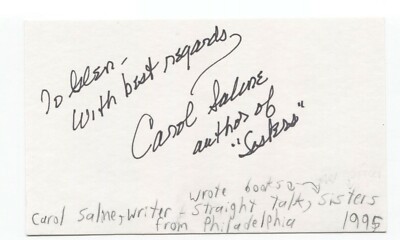 To Glen -
With best regards,
Carol Saline
author of
"Sisters"
wrote books
Carol Saline, writer - Straight Talk, Sisters
from Philadelphia 1995